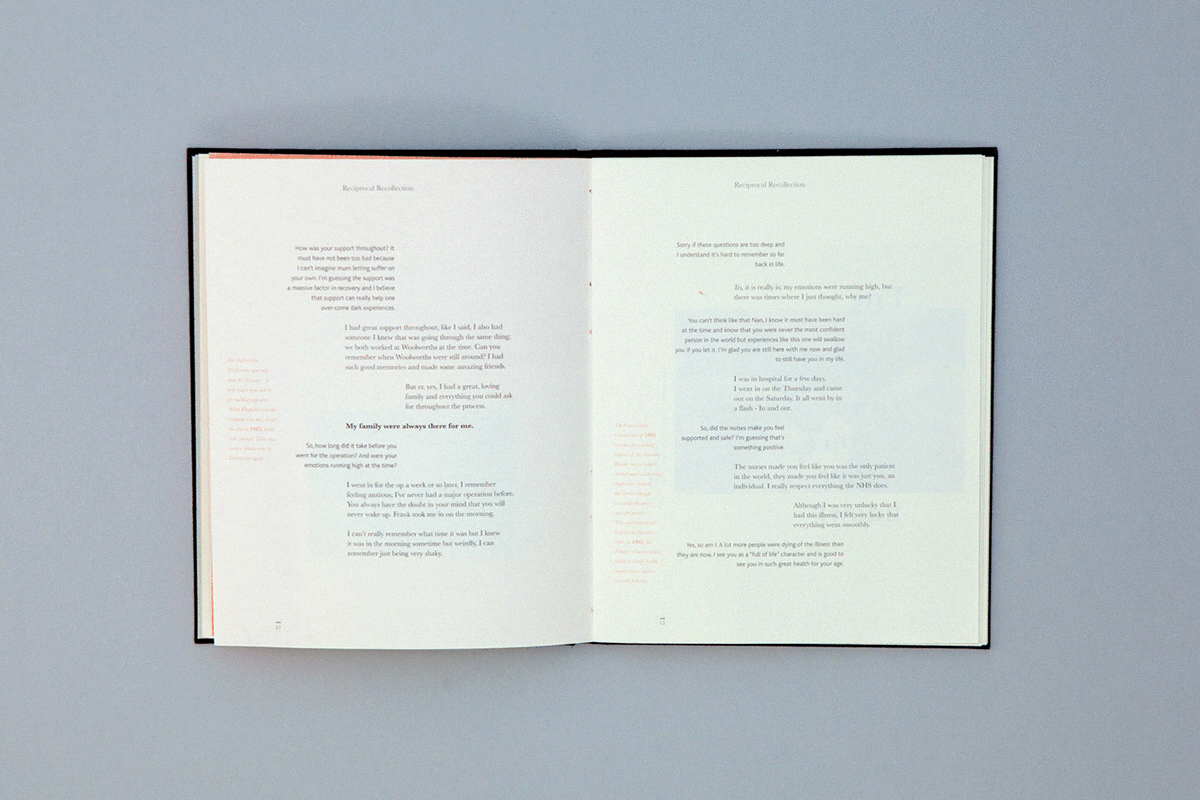 Reciprocal Recollection
How was your support throughout? It
must have not been too bad because
I can't imagine mum letting suffer on
your own. I'm guessing the support was
a massive factor in recovery and I believe
that support can really help one
over-come dark experiences.
I had great support throughout, like I said, I also had
someone I knew that was going through the same thing;
we both worked at Woolworths at the time. Can you
remember when Woolworths were still around? I had
such good memories and made some amazing friends.
But er, yes, I had a great, loving
family and everything you could ask
for throughout the process.
My family were always there for me.
So, how long did it take before you
went for the operation? And were your
emotions running high at the time?
I went in for the op a week or so later, I remember
feeling anxious; I've never had a major operation before.
You always have the doubt in your mind that you will
never wake up. Frank took me in on the morning.
I can't really remember what time it was but I knew
it was in the morning sometime but weirdly, I can
remember just being very shaky.
Reciprocal Recollection
Sorry if these questions are too deep and
I understand it's hard to remember so far
back in life.
it is really is; my emotions were running high, but
there was times where I just thought, why me?
You can't think like that Nan, I know it must have been hard
at the time and know that you were never the most confident
person in the world but experiences like this one will swallow
you if you let it. I'm glad you are still here with me now and glad
to still have you in my life.
I was in hospital for a few days.
I went in on the Thursday and came
out on the Saturday. It all went by in
a flash - In and out.
So, did the nurses make you feel
supported and safe? I'm guessing that's
something positive.
The nurses made you feel like you was the only patient
in the world, they made you feel like it was just you, an
individual. I really respect everything the NHS does.
Although I was very unlucky that I
had this illness, I felt very lucky that
everything went smoothly.
Yes, so am I. A lot more people were dying of the illness than
they are now. I see you as a "full of life" character and is good to
see you in such great health for your age.